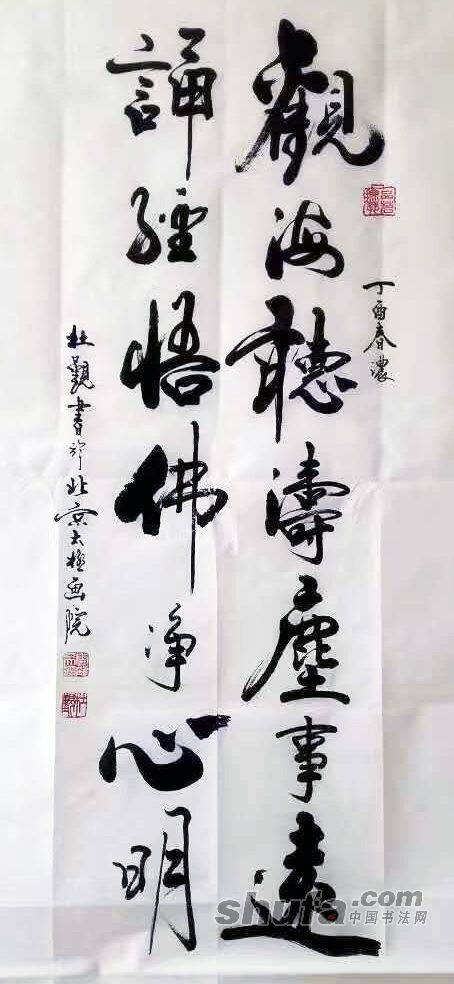 丁酉春濃
觀海聽濤塵事遠
誦經悟佛净心明
杜觀書於北京太極画院
shufa.com
中国书法网